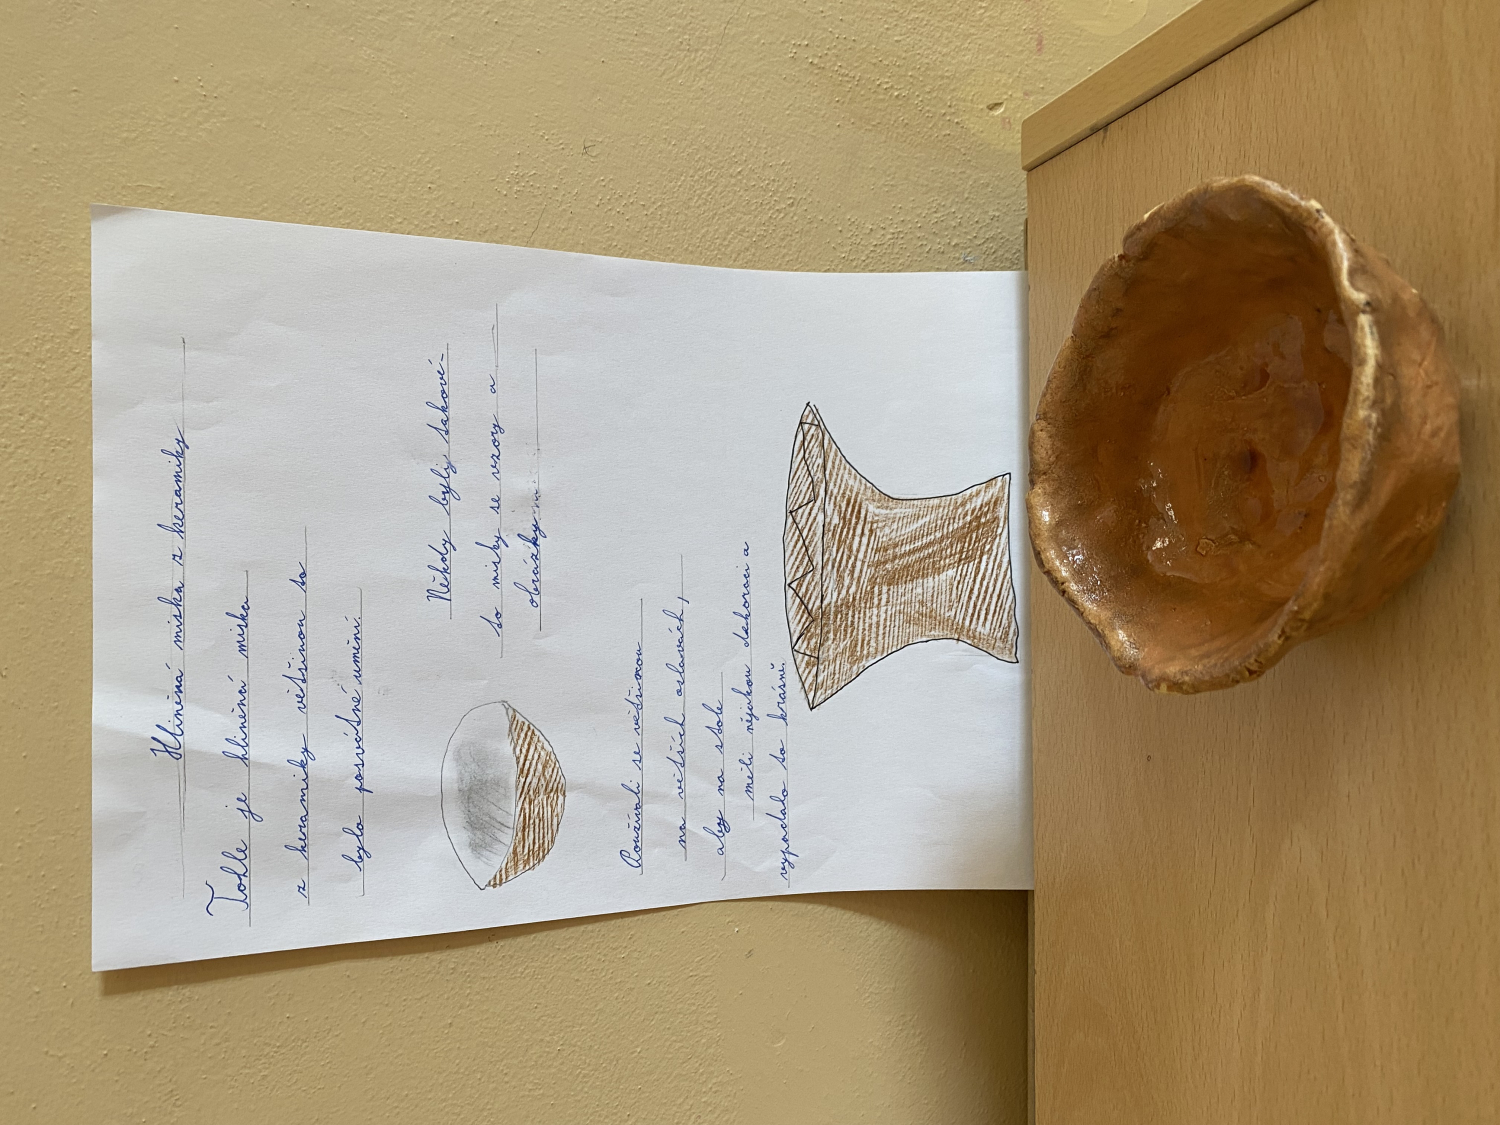 Hliněná miska z keramiky
Tohle je hliněná miska
z keramiky většinou to
bylo posvátné umění.
Někdy byly takové-
to misky se vzory a
obrázky
Používali se většinou
na větších oslavách,
aby na stole
měli nějakou dekoraci a
vypadalo to krásně.